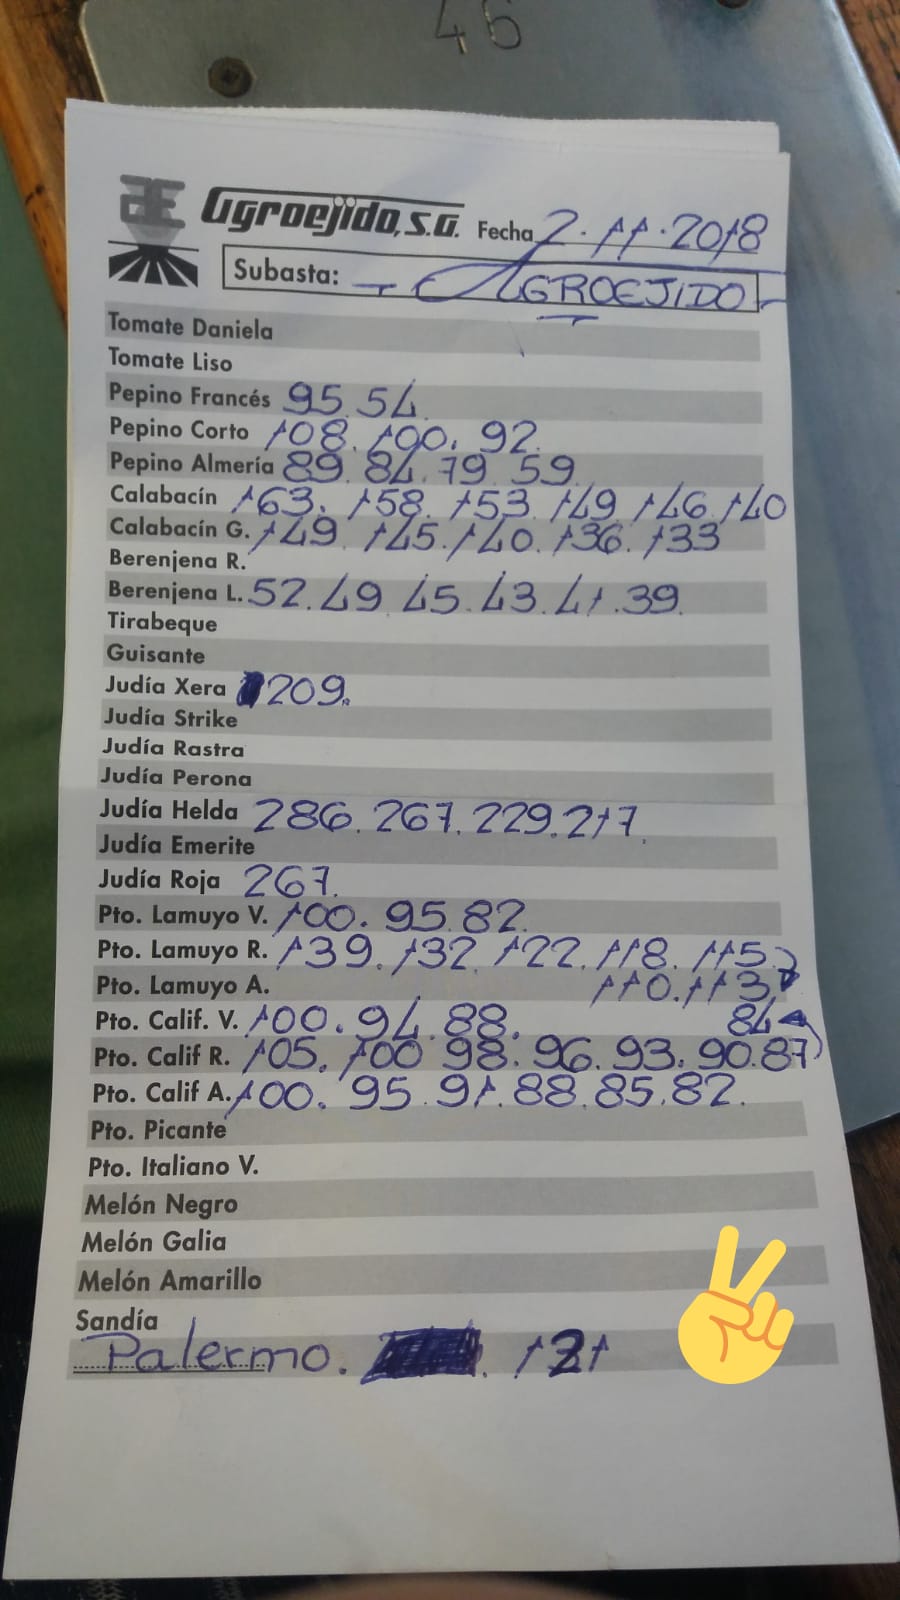 46
Agroejido, S.A. Fecha 2.11.2018
Subasta: AGROEJIDO
Tomate Daniela
Tomate Liso
Pepino Francés 95 54
Pepino Corto 108. 100. 92.
Pepino Almería 89. 84. 79. 59
Calabacín 163. 158. 153 149 146. 140
Calabacín G. 149. 145. 140. 136. 133
Berenjena R.
Berenjena L. 52. 49 45. 43. 41. 39.
Tirabeque
Guisante
Judía Xera 209.
Judía Strike
Judía Rastra
Judía Perona
Judía Helda 286. 267. 229. 217.
Judía Emerite
Judía Roja 267.
Pto. Lamuyo V. 100. 95. 82.
Pto. Lamuyo R. 139. 132. 122. 118. 115.
Pto. Lamuyo A. 110. 113
Pto. Calif. V. 100. 94. 88. 84
Pto. Calif R. 105. 100 98. 96. 93. 90. 87
Pto. Calif A. 100. 95. 91. 88. 85. 82.
Pto. Picante
Pto. Italiano V.
Melón Negro
Melón Galia
Melón Amarillo
Sandía
Palermo. 121